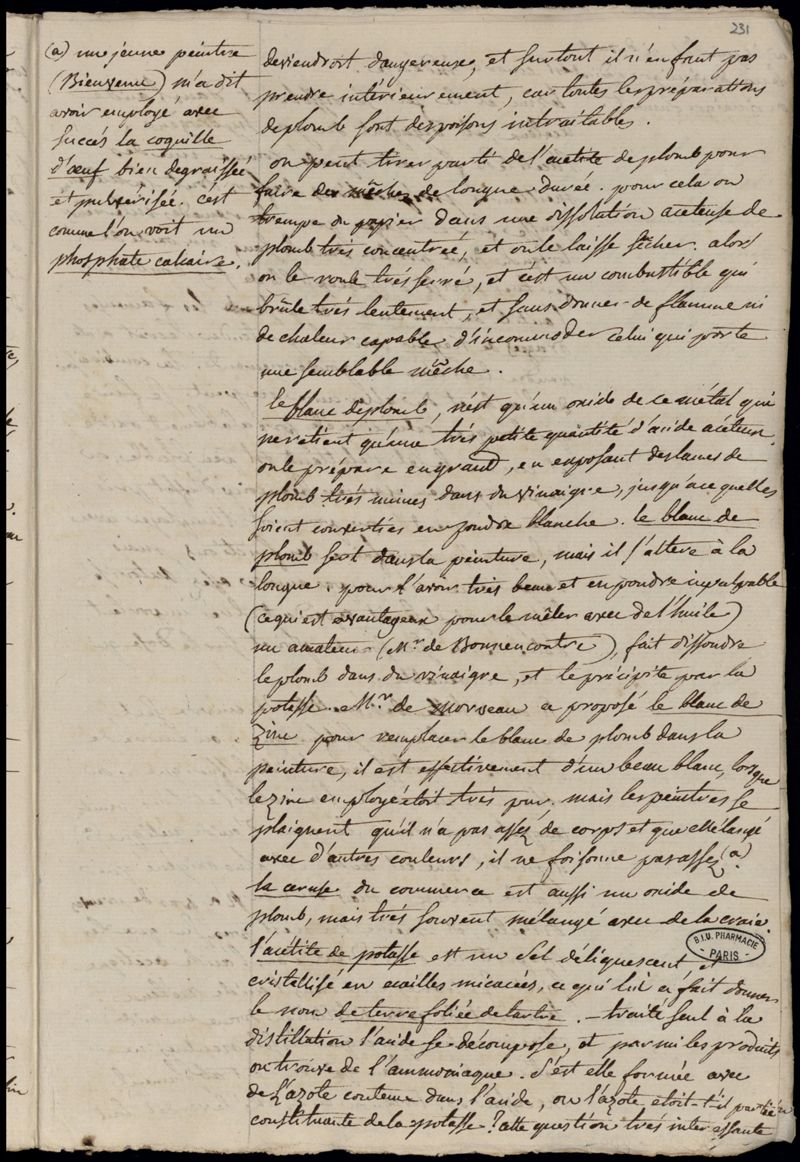 231
(a) une jeune peintre
(Bienvenu) m'a dit
avoir employé avec
succès la coquille
d'œuf bien degraissée
et pulvérisée. c'est
comme l'on voit un
phosphate calcaire.
deviendroit dangereuse, et surtout il n'en faut pas
prendre intérieurement, car toutes les préparations
de plomb sont des poisons intraitables.
on peut tirer parti de l'acétite de plomb pour
faire des mêches de longue durée. pour cela on
trempe du papier dans une dissolution aceteuse de
plomb très concentrée, et on le laisse sêcher. alors
on le roule très serré, et c'est un combustible qui
brûle très lentement, et sans donner de flamme ni
de chaleur capable d'incommoder celui qui porte
une semblable mêche.
le blanc de plomb, n'est qu'un oxide de ce métal qui
ne retient qu'une très petite quantité d'acide aceteux.
on le prépare en grand, en exposant des lames de
plomb très minces dans du vinaigre, jusqu'à ce qu'elles
soient converties en poudre blanche. le blanc de
plomb sert dans la peinture, mais il s'altere à la
longue. pour l'avoir très beau et en poudre impalpable
(ce qui est avantageux pour le mêler avec de l'huile)
un amateur (Mr. de Bonnencontre), fait dissoudre
le plomb dans du vinaigre, et le précipite par la
potasse. Mr. de morveau a proposé le blanc de
zinc pour remplacer le blanc de plomb dans la
peinture, il est effectivement d'un beau blanc, lorsque
le zinc employé étoit très pur. mais les peintres se
plaignent qu'il n'a pas assez de corps et que mélangé
avec d'autres couleurs, il ne foisonne pas assez (a).
la ceruse du commerce est aussi un oxide de
plomb, mais très souvent mélangé avec de la craie.
l'acétite de potasse est un sel déliquescent et
cristallisé en ecailles micacées, ce qui lui a fait donner
le nom de terre foliée de tartre. traité seul à la
distillation l'acide se décompose, et parmi les produits
on trouve de l'ammoniaque. s'est elle formée avec
de l'azote contenu dans l'acide, ou l'azote etoit-t'il partie
constituante de la potasse ? cette question très interessante
B.I.U. PHARMACIE
PARIS